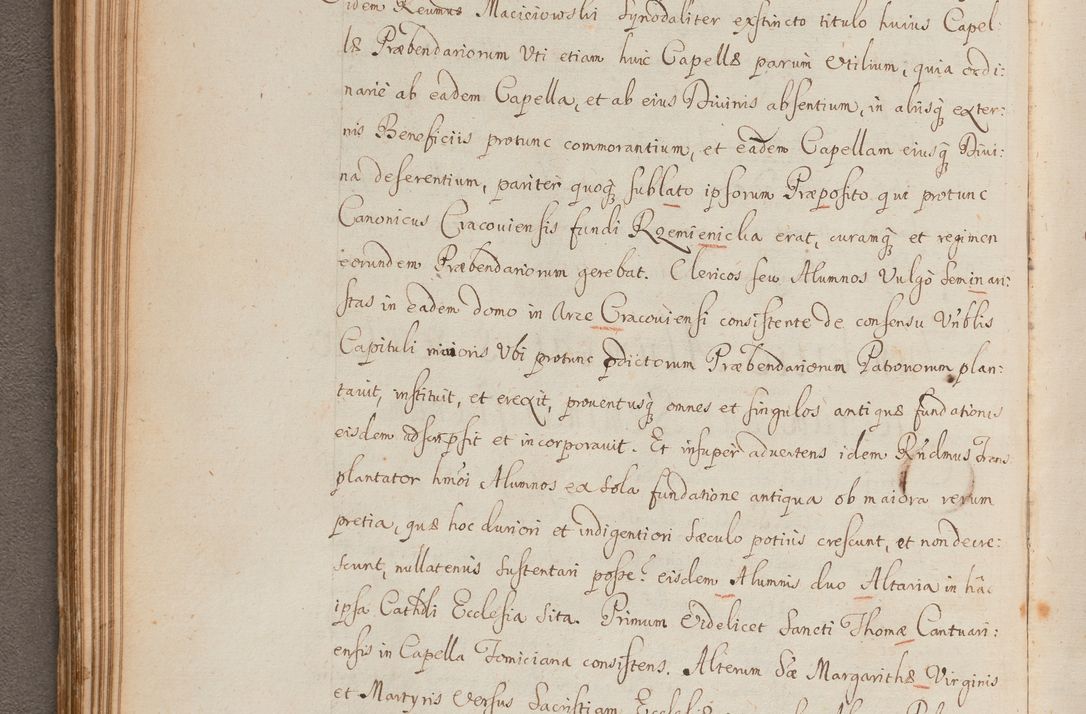 idem Reumus Maciciowski Synodaliter exstincto titulo huius Capel:
læ Præbendariorum Uti etiam huic Capellæ parum Utilium, quia ordi:
narie ab eadem Capella, et ab eius Divinis absentium, in aliisq̃ exter:
nis Beneficiis protunc commorantium, et eadem Capellam eiusq̃ Divi:
na deserentium, pariter quoq̃ sublato ipsorum Præposito qui protunc
Canonicus Cracouiensis fundi Rzemienicka erat, curamq̃ et regimen
eorundem Præbendariorum gerebat. Clericos seu Alumnos Vulgò Seminari:
stas in eadem domo in Arce Cracouiensi consistente de consensu Vnblis
Capituli maioris Vbi protunc pdictorum Præbendariorum Patronorum plan:
tauit, instituit, et erexit, prouentusq̃ omnes et singulos antiquæ fundationis
eisdem adscripsit et incorporauit. Et insuper aduertens idem Rndmus Trans
plantator hmõi Alumnos ex Sola fundatione antiqua ob maiora rerum
pretia, quæ hoc duriori et indigentiori Sæculo potius crescunt, et non decre:
scunt, nullatenus Sustentari posse: eisdem Alumnis duo Altaria in hac
ipsa Cathdli Ecclesia Sita. Primum Videlicet Sancti Thomæ Cantuari:
ensis in Capella Tomiciana consistens. Alterum Sæ Margarithæ Virginis
et Martyris Versus Sacristiam